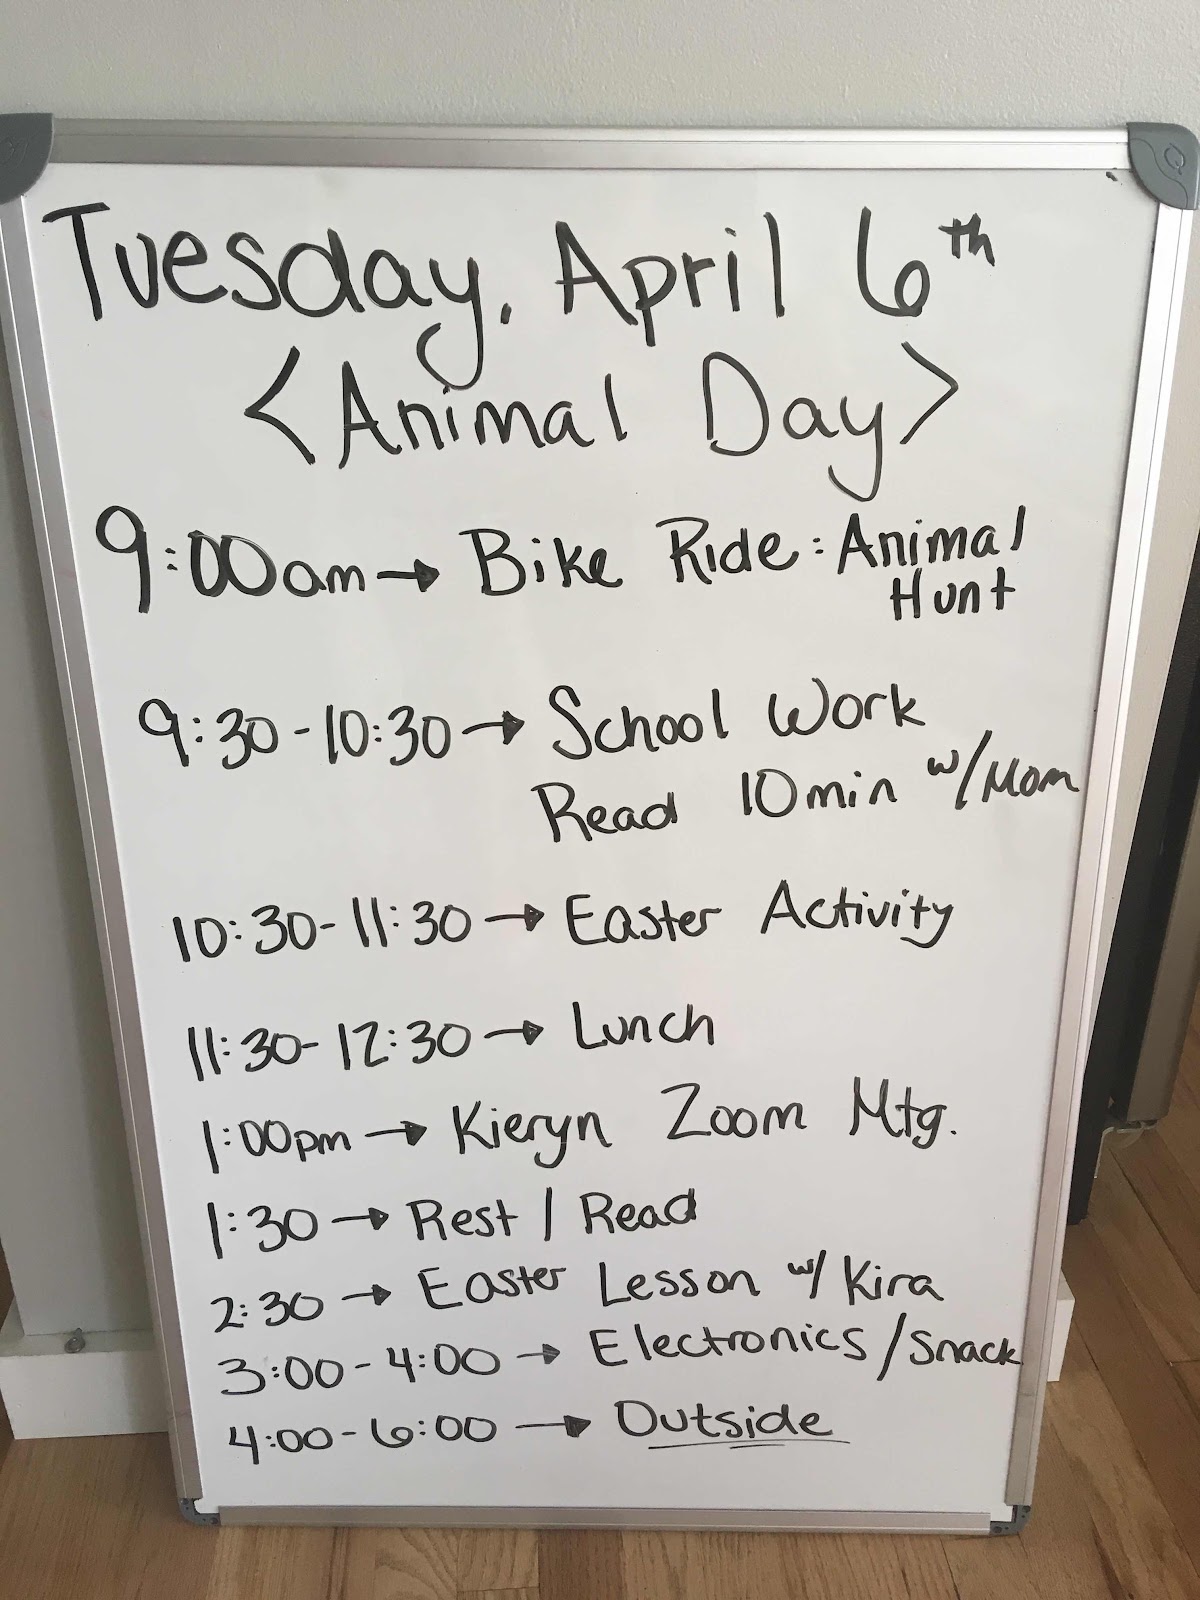 Tuesday, April 6th
<Animal Day>
9:00am → Bike Ride: Animal
Hunt
9:30-10:30 → School Work
Read 10min w/Mom
10:30-11:30 → Easter Activity
11:30-12:30 → Lunch
1:00pm → Kieryn Zoom Mtg.
1:30 → Rest / Read
2:30 → Easter Lesson w/ Kira
3:00-4:00 → Electronics/Snack
4:00-6:00 → Outside